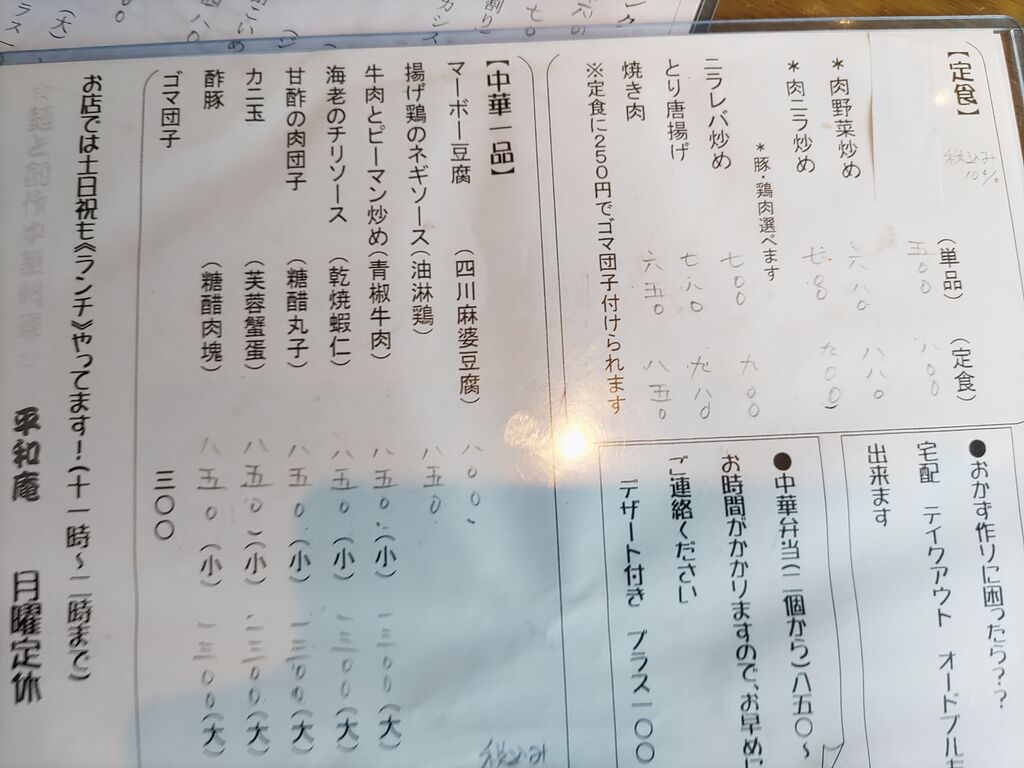 【定食】 税込み 10%
(単品) (定食)
五〇〇 八〇〇
*肉野菜炒め 六八〇 八八〇
*肉ニラ炒め 九〇〇
*豚・鶏肉選べます
ニラレバ炒め 七〇〇 九〇〇
とり唐揚げ 七八〇 九八〇
焼き肉 六五〇 八五〇
※定食に250円でゴマ団子付けられます
●おかず作りに困ったら??
宅配 テイクアウト オードブルも
出来ます
●中華弁当(二個から)八五〇~
お時間がかかりますので、お早めに
ご連絡ください
デザート付き プラス一〇〇
【中華一品】
マーボー豆腐 (四川麻婆豆腐) 八〇〇
揚げ鶏のネギソース(油淋鶏) 八五〇
牛肉とピーマン炒め(青椒牛肉) 八五〇(小) 一三〇〇(大)
海老のチリソース (乾焼蝦仁) 八五〇(小) 一三〇〇(大)
甘酢の肉団子 (糖醋丸子) 八五〇(小) 一三〇〇(大)
カニ玉 (芙蓉蟹蛋) 八五〇(小) 一三〇〇(大)
酢豚 (糖醋肉塊) 八五〇(小) 一三〇〇(大)
ゴマ団子 三〇〇
税込み
お店では土日祝も《ランチ》やってます!(十一時~二時まで)
平和庵 月曜定休